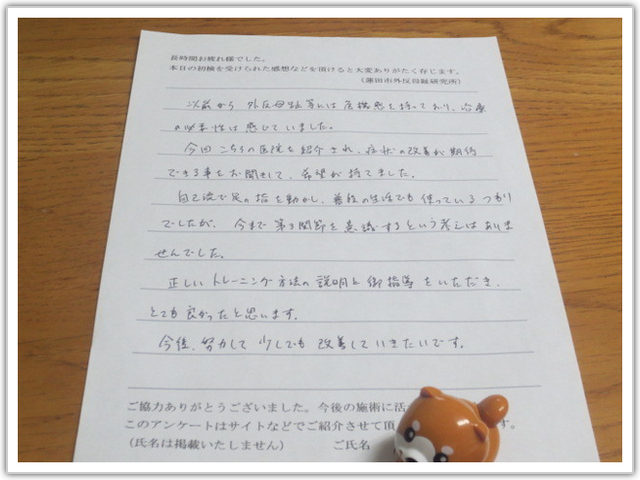 長時間お疲れ様でした。
本日の初検を受けられた感想などを頂けると大変ありがたく存じます。
(蓮田市外反母趾研究所)
以前から外反母趾等には危機感を持っており、治療
の必要性は感じていました。
今回こちらの医院を紹介され、症状の改善が期待
できる事をお聞きして、希望が持てました。
自己流で足の指を動かし、普段の生活でも使っているつもり
でしたが、今まで第3関節を意識するという考えはありま
せんでした。
正しいトレーニング方法の説明と御指導をいただき、
とても良かったと思います。
今後、努力して少しでも改善していきたいです。
ご協力ありがとうございました。今後の施術に活
このアンケートはサイトなどでご紹介させて頂 す。
(氏名は掲載いたしません) ご氏名